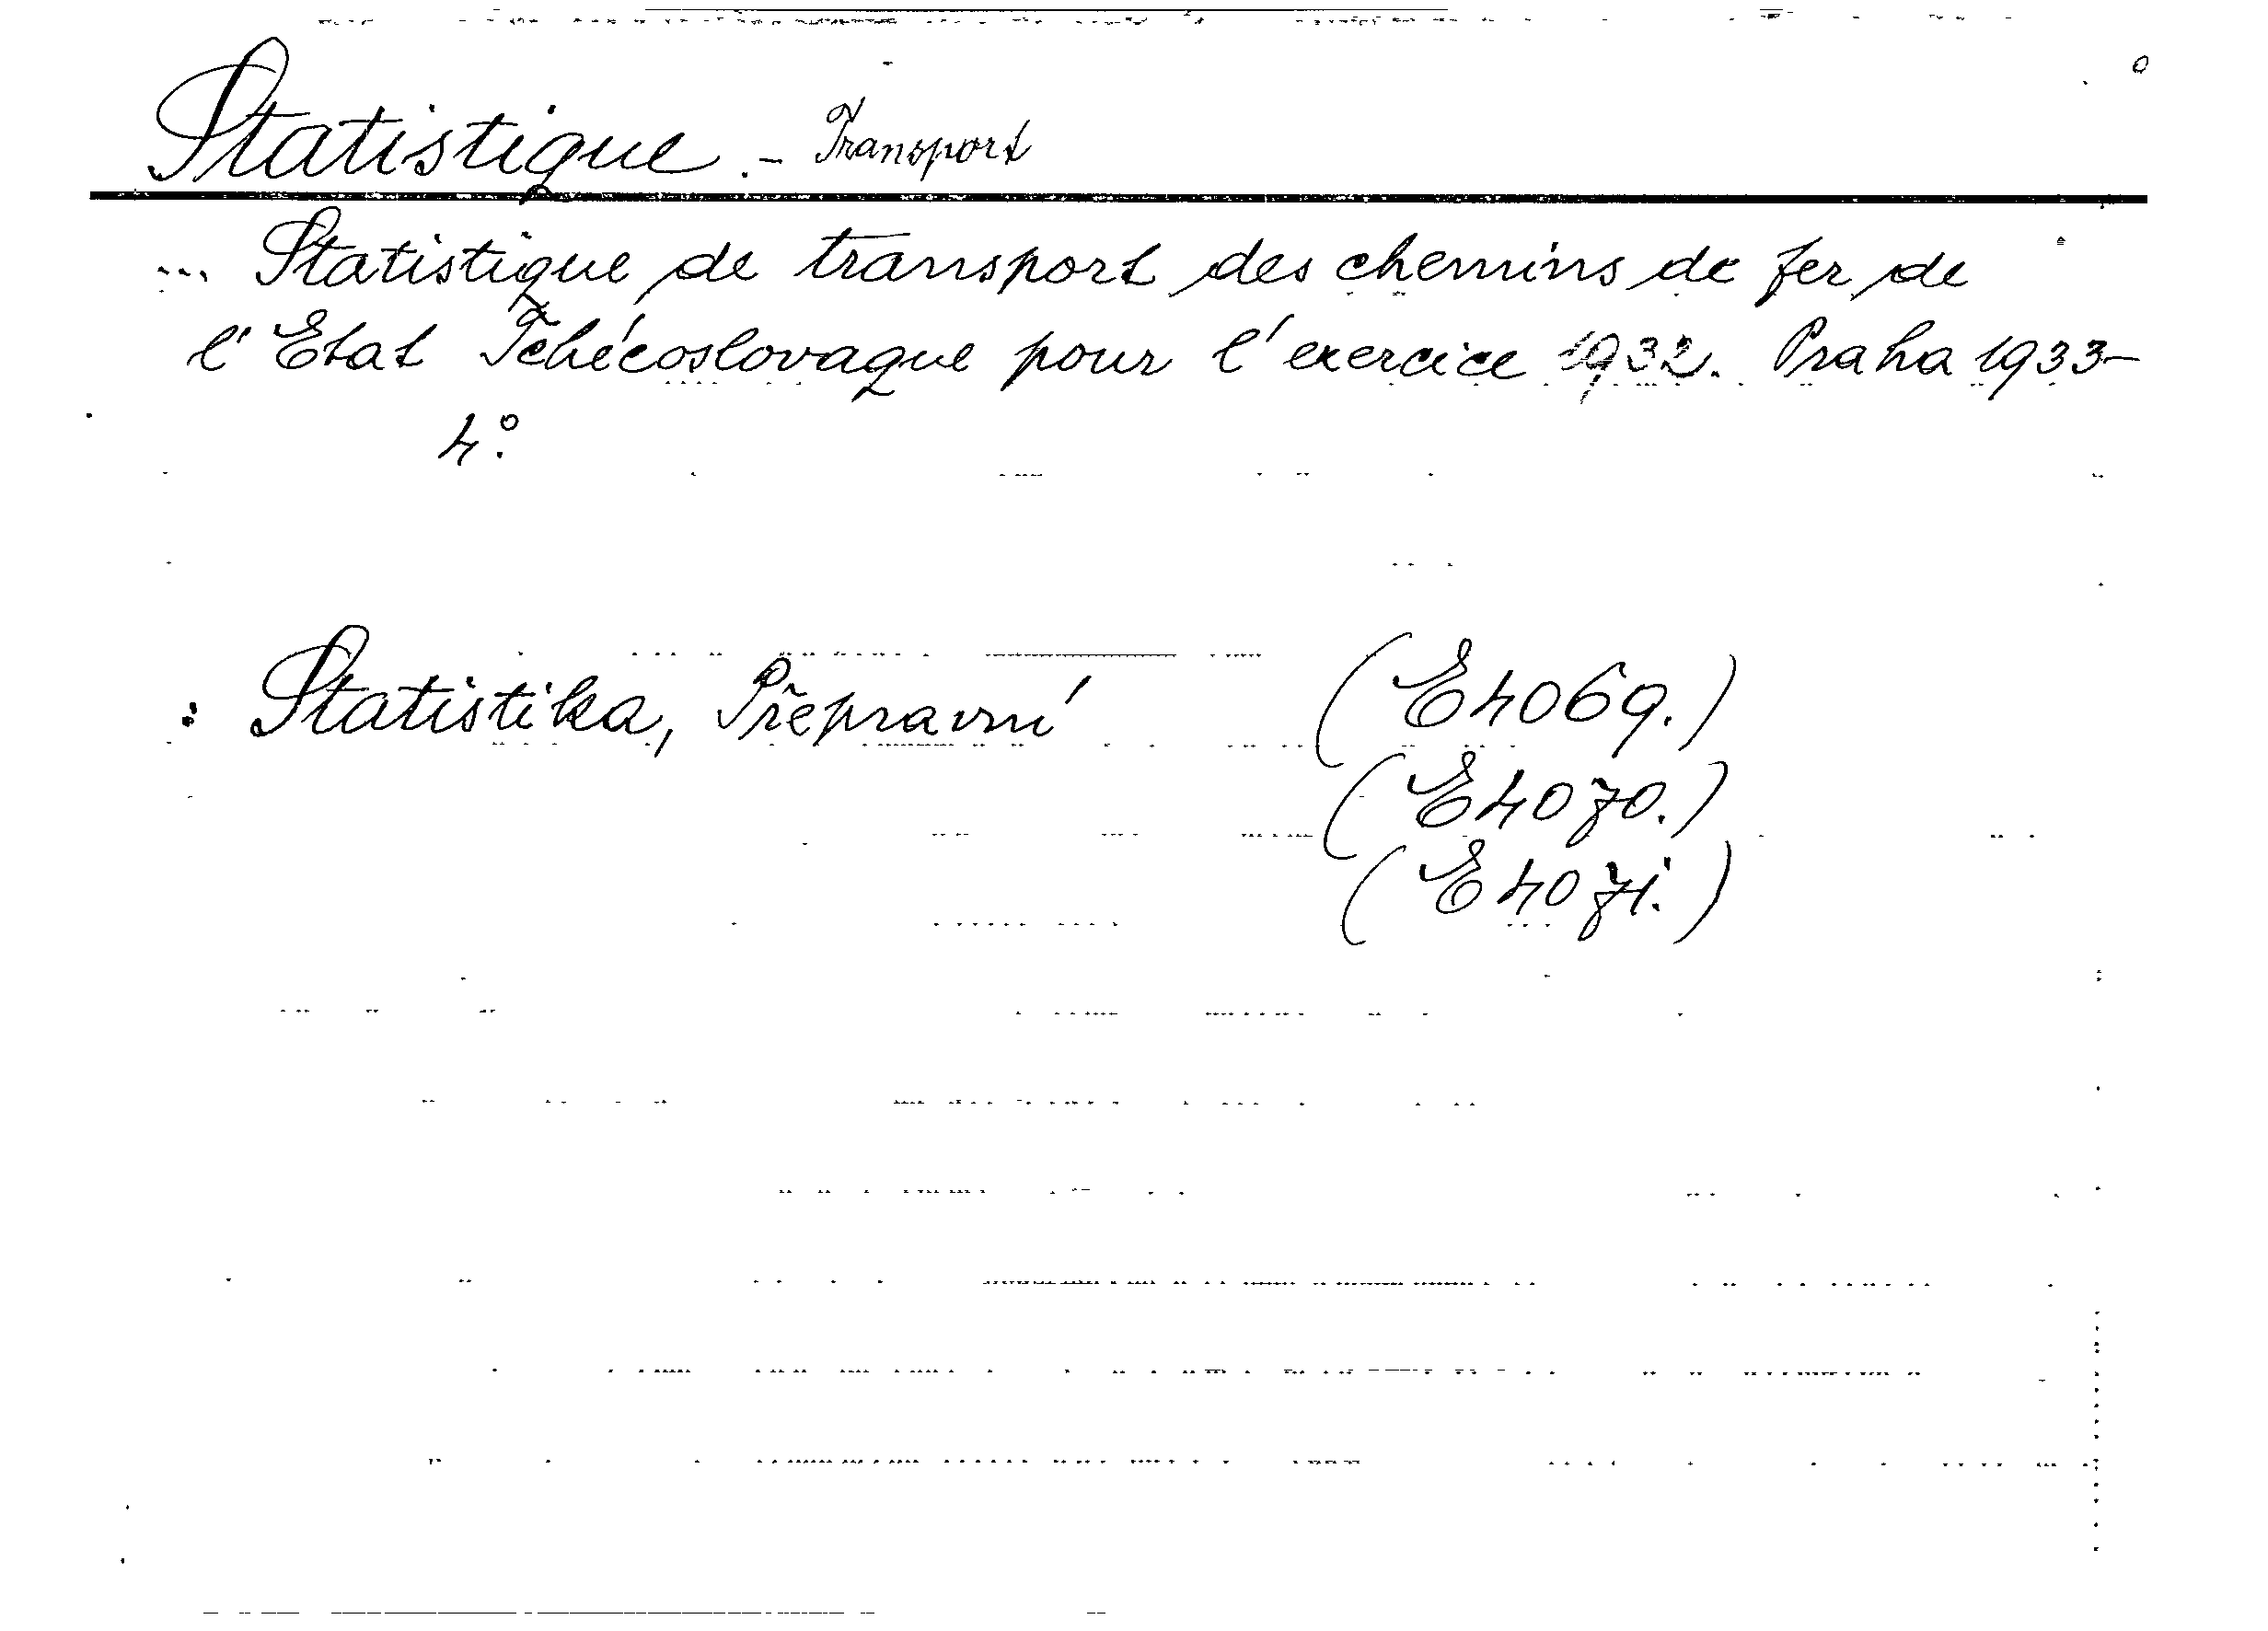 Statistique. - Transport
... Statistique de transport des chemins de fer de
l'Etat Tchécoslovaque pour l'exercice 1932. Praha 1933-
4°.
: Statistika, Přepravní (E4069.)
(E4070.)
(E4071.)